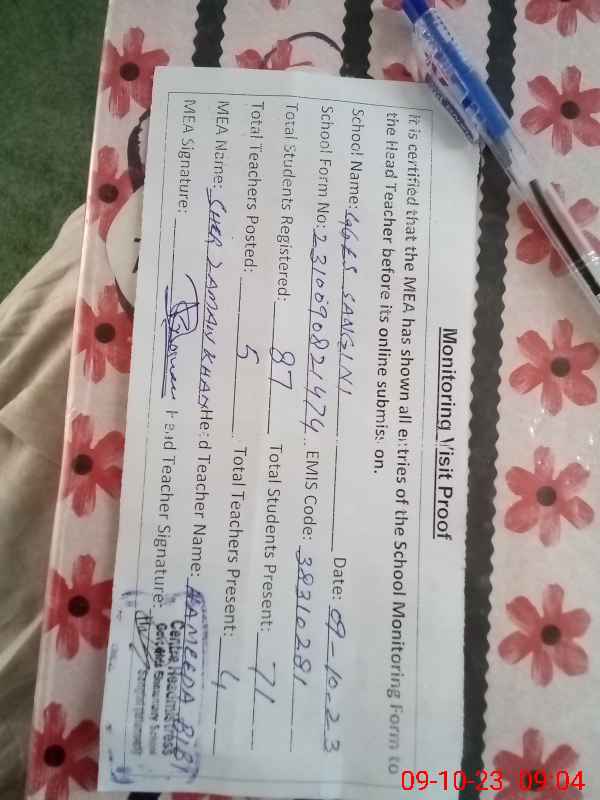 Monitoring Visit Proof
It is certified that the MEA has shown all entries of the School Monitoring Form to
the Head Teacher before its online submission.
School Name: GGES SANGINI Date: 09-10-23
School Form No: 2310090821474 EMIS Code: 38310281
Total Students Registered: 87 Total Students Present: 71
Total Teachers Posted: 5 Total Teachers Present: 4
MEA Name: SHER ZAMAN KHAN Head Teacher Name: HAMEEDA BIBI
MEA Signature: Head Teacher Signature:
Centre Headmistress
Secondary School
09-10-23 09:04